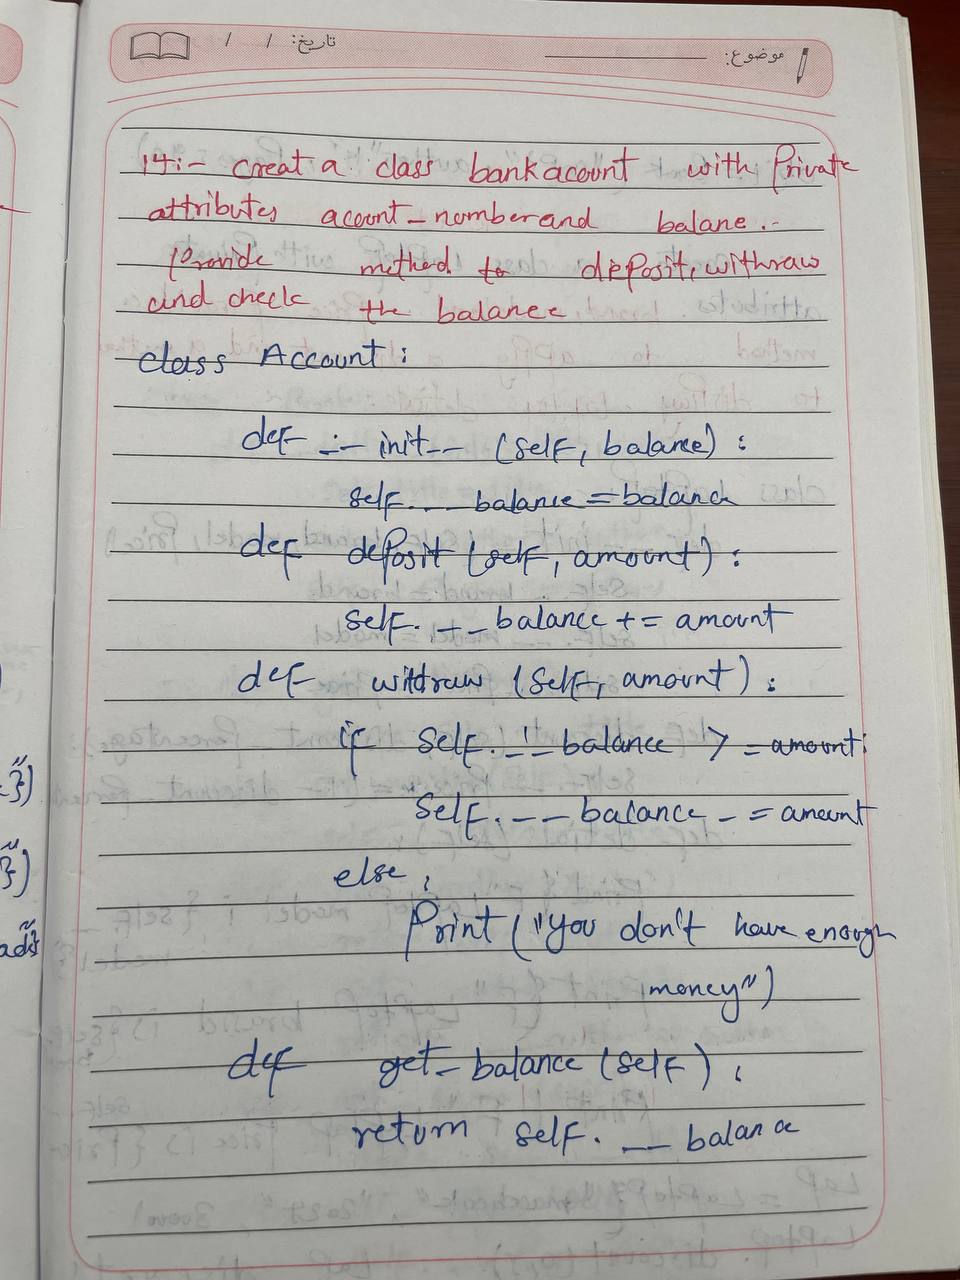 موضوع: تاریخ: / /
14:- creat a class bank acount with Private
attributes acount_nomber and balane .-
Provide method to deposit, withraw
and check the balance
class Account:
def __init__ (self, balance) :
self.__balance = balance
def deposit (self, amount) :
self.__balance += amount
def witdraw (self, amount) :
if self.__balance >= amount:
self.__balance -= amount
else :
Print ("you don't have enough
money")
def get_balance (self) :
return self.__balance